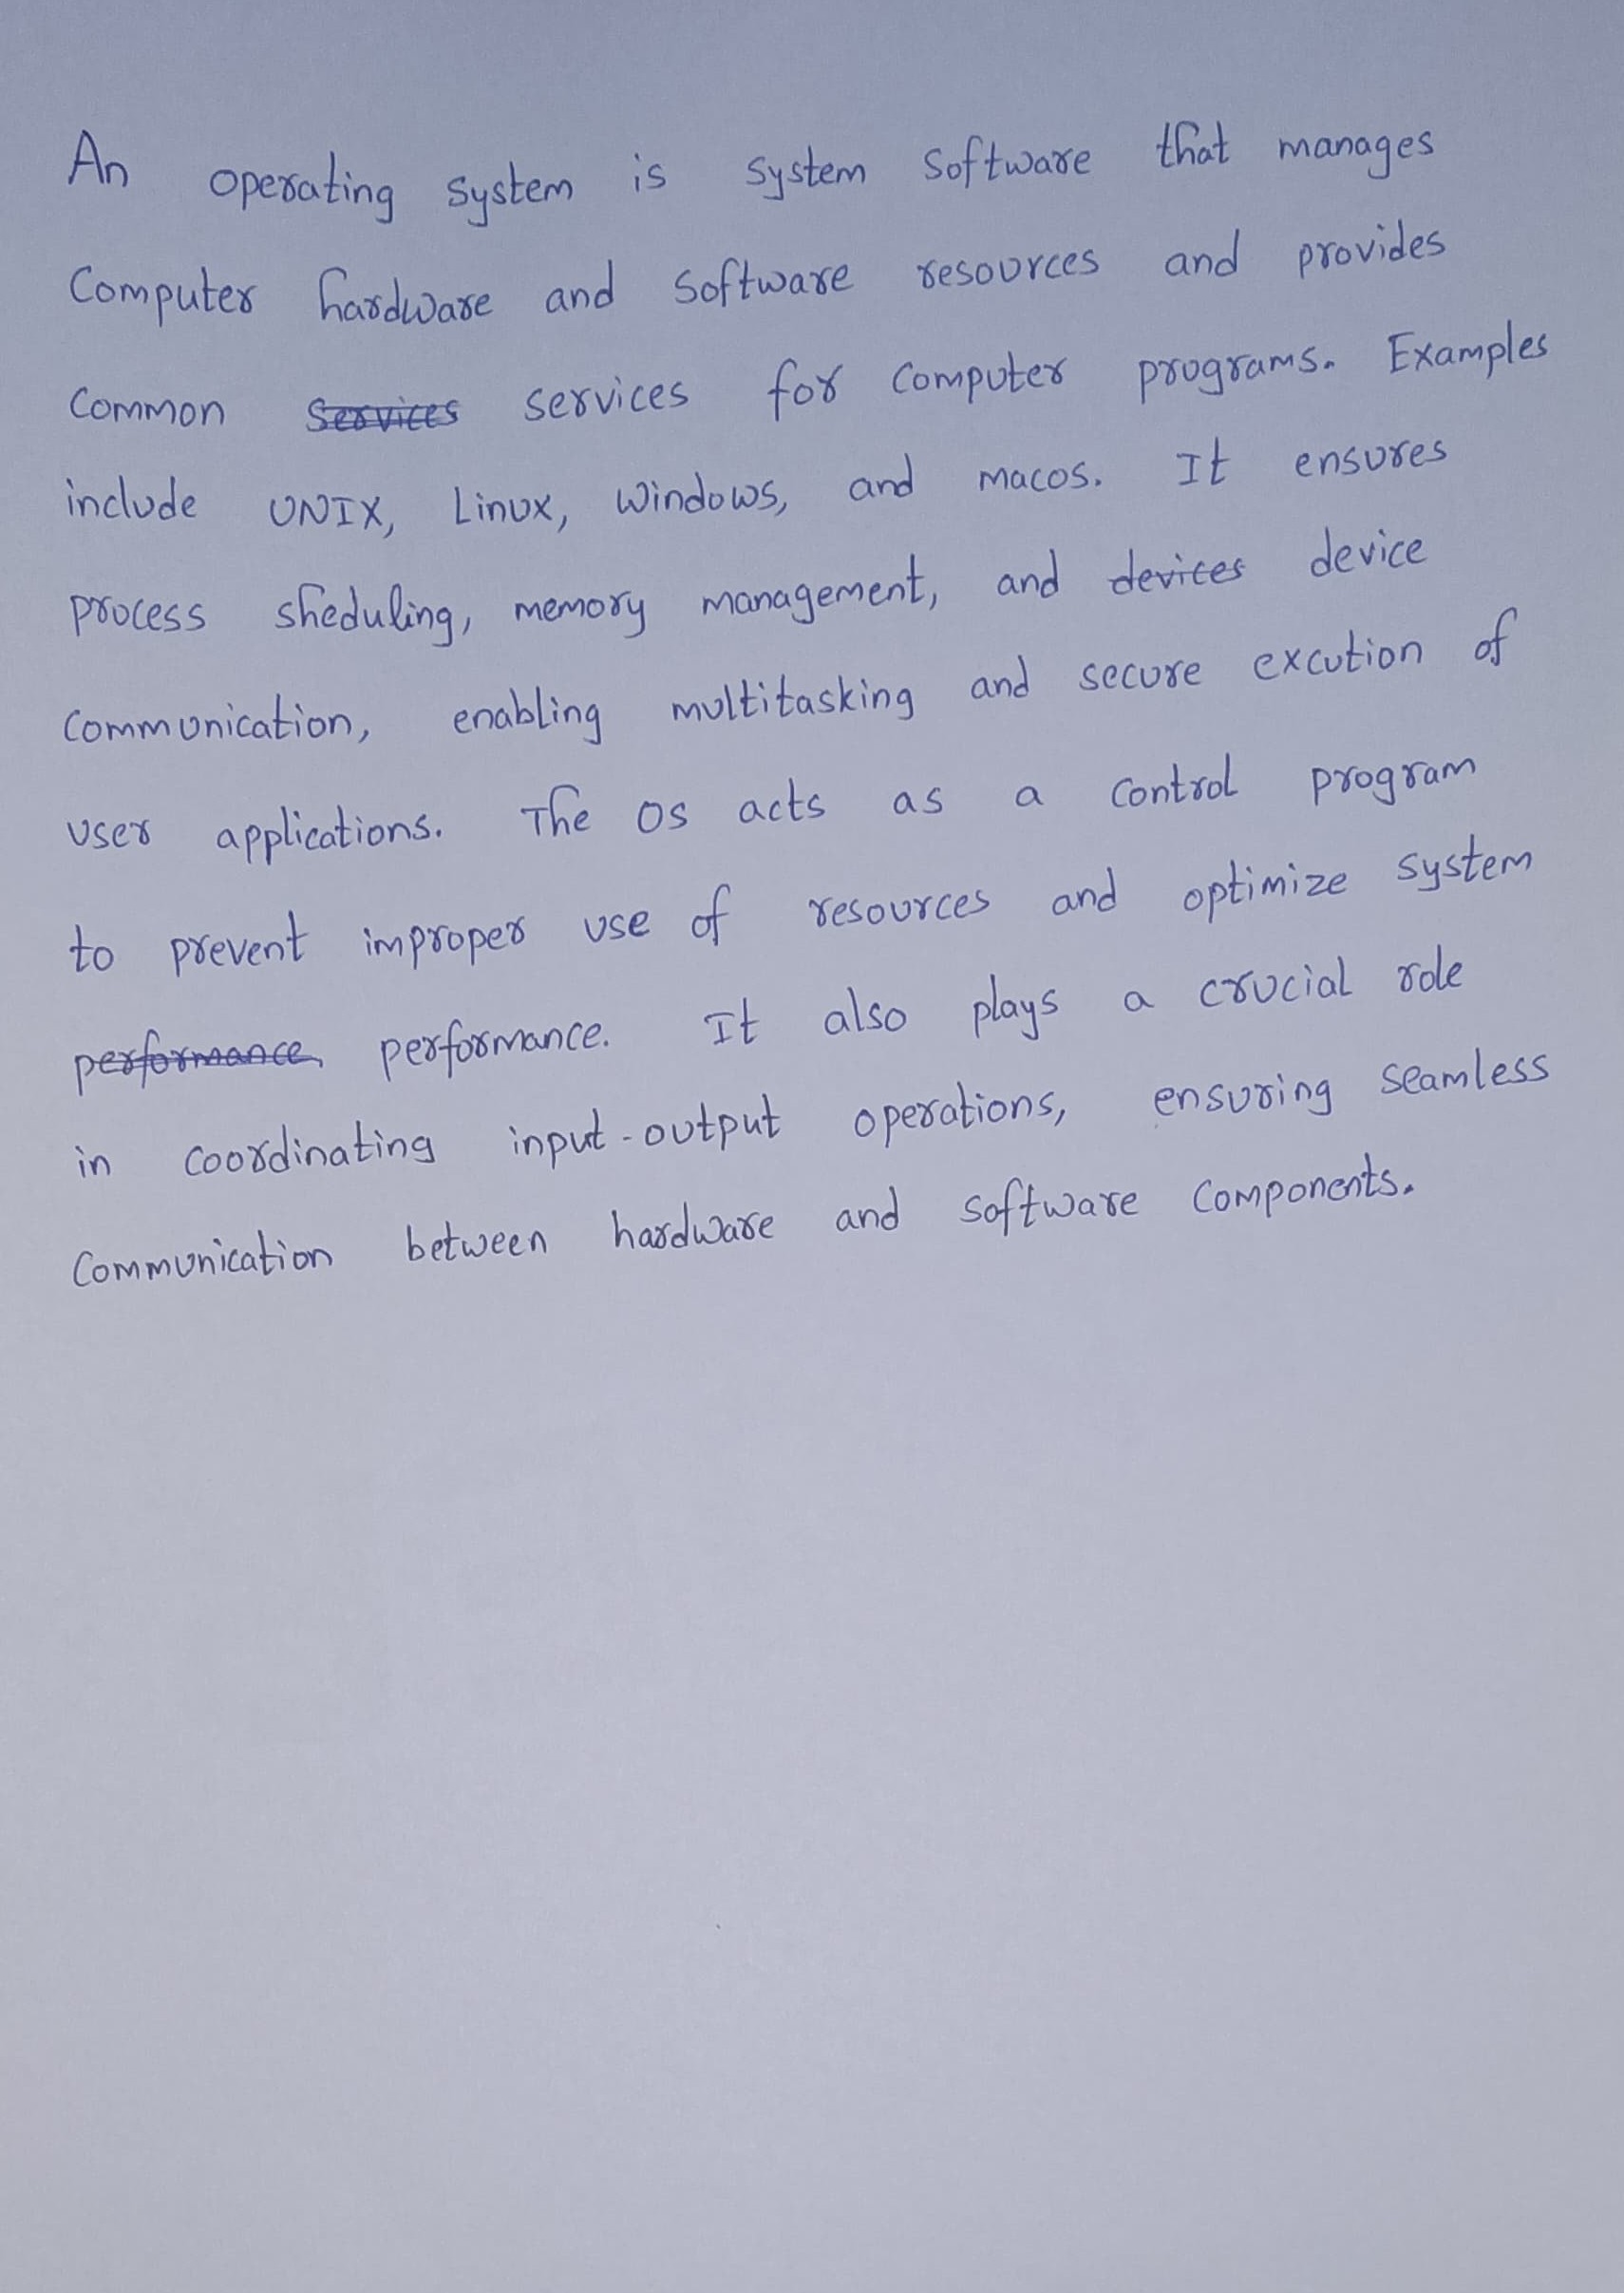 An operating system is system software that manages
Computer hardware and software resources and provides
Common ~~services~~ services for computer programs. Examples
include UNIX, Linux, Windows, and macos. It ensures
process sheduling, memory management, and ~~devices~~ device
communication, enabling multitasking and secure excution of
user applications. The OS acts as a control program
to prevent improper use of resources and optimize system
~~performance,~~ performance. It also plays a crucial role
in coordinating input-output operations, ensuring seamless
communication between hardware and software components.